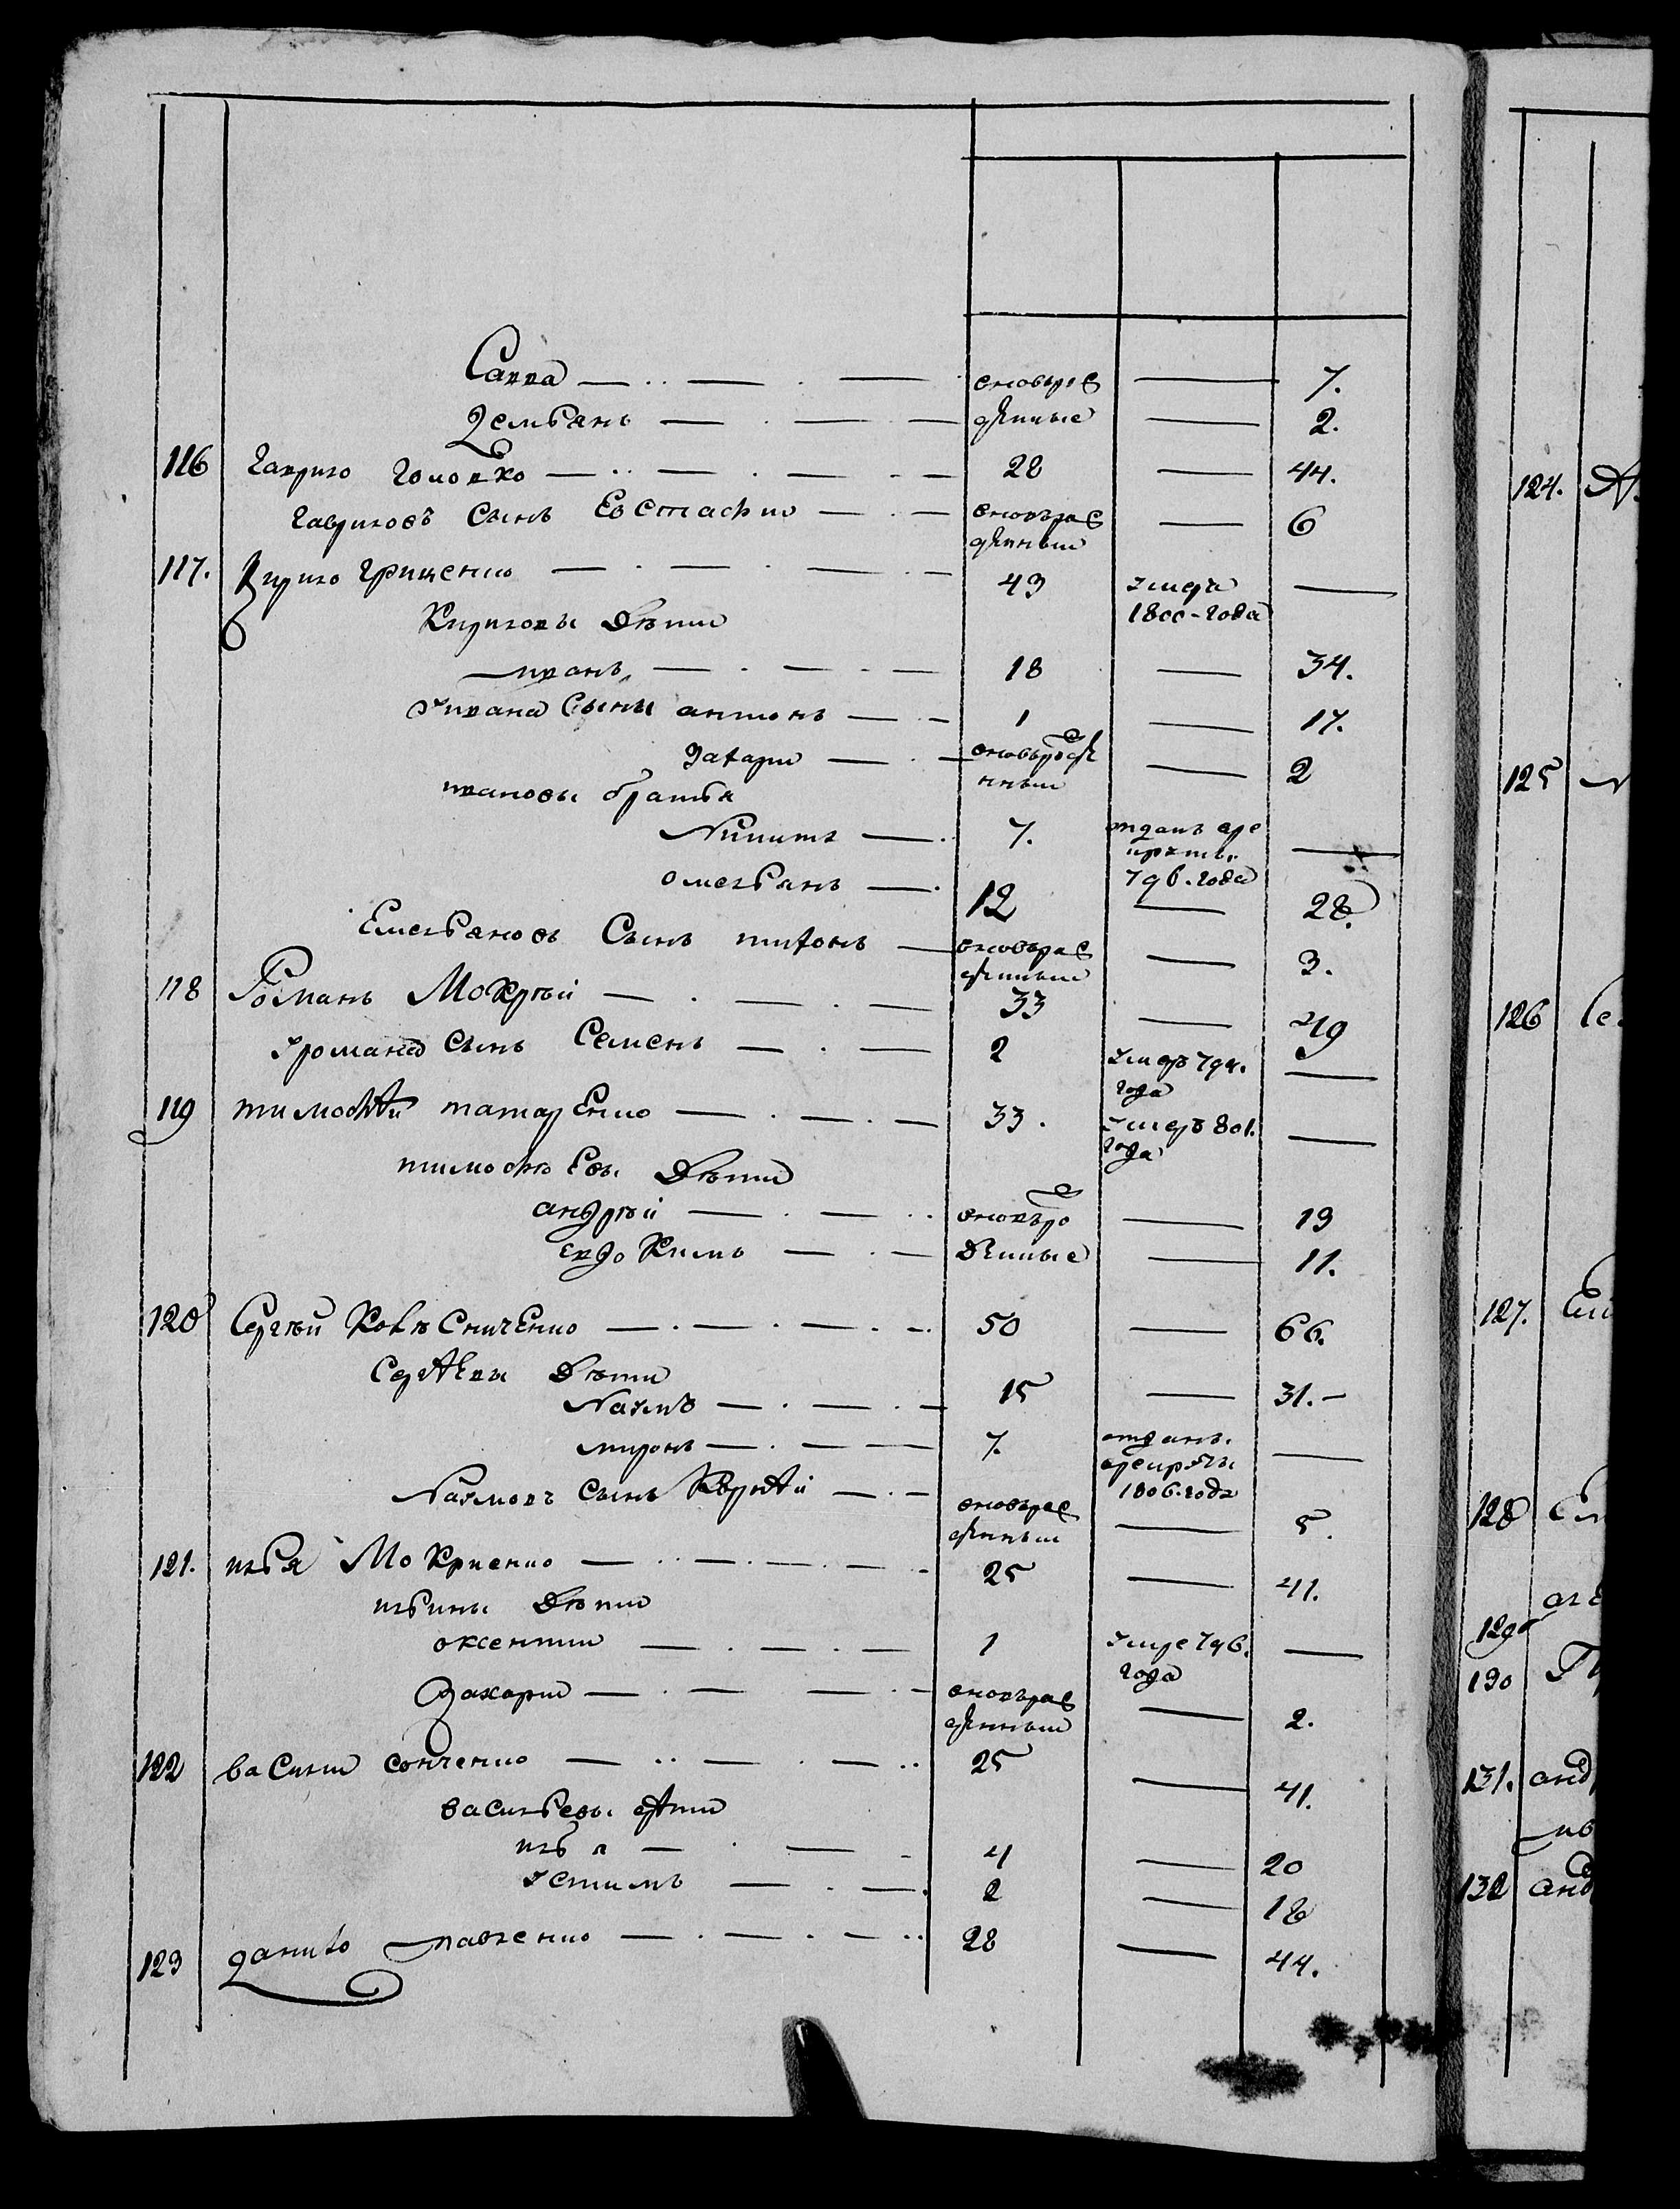 Савва — 7.
Демьянъ — 2.
вновьрож
денные
116 Гаврило Головко — 28 — 44.
Гавриловъ сынъ Евстафий — вновьрож — 6
денный
117. Кирило Грищенко — 43 умеръ —
1800-года
Кириловы дѣти
иванъ — 18 — 34.
У ивана сыны антонъ — 1 — 17.
Захари — вновьрожде — 2
нный
ивановы братья
Никита — 7. отданъ —
796. года
омельянъ — 12 — 28.
Емельяновъ сынъ тихонъ — вновьрож — 3.
денный
118 Романъ Мокрый — 33 — 49
У романа сынъ Семенъ — 2 умеръ 794. —
года
119 тимофѣй татаренко — 33. умеръ 801. —
года
тимофѣевы дѣти
андрѣй — вновьро — 19
евдокимъ — жденные — 11.
120 Сергѣй — 50 — 66.
Сергѣевы дѣти
Наумъ — 15 — 31.
миронъ — 7. отданъ. —
врекруты
1806. года
Наумовъ сынъ Корнѣй — вновьрож — 5.
денный
121. илья Мокриенко — 25 — 41.
ильины дѣти
оксентий — 1 умре 796. —
года
Захарий — вновьрож — 2.
денный
122 василий сонченко — 25 — 41.
васильевы дѣти
илья — 4 — 20
устимъ — 2 — 18
123 данило павленко — 28 — 44.
124.
125
126
127.
128
129
130
131. анд
132 анд